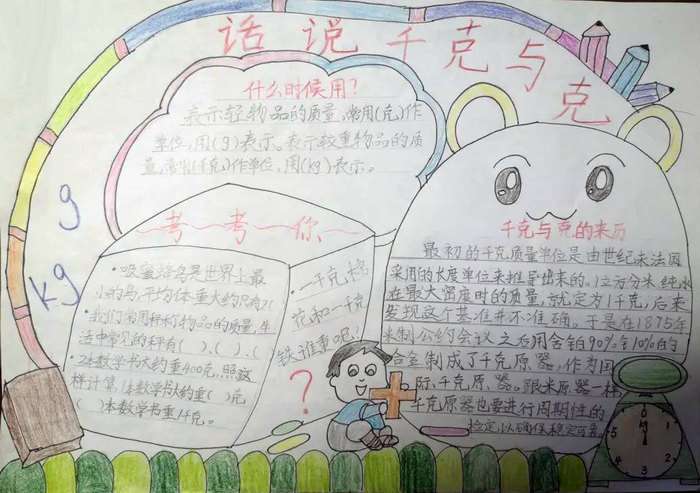 话说千克与克
什么时候用？
表示轻物品的质量，常用(克)作
单位，用(g)表示。表示较重物品的质
量，常用(千克)作单位，用(kg)表示。
g
kg
考考你
·吸蜜蜂鸟是世界上最
小的鸟，平均体重大约只有2(
·我们常用秤称物品的质量，生
活中常见的秤有( )、( )、( )
·2本数学书大约重400克，照这
样计算，1本数学书大约重( )克
( )本数学书重1千克。
一千克棉
花和一千克
铁谁重呢？
?
千克与克的来历
最初的千克质量单位是由世纪末法国
采用的长度单位来推导出来的。1立方分米 纯水
在最大密度时的质量，就定为1千克，后来
发现这个基准并不准确。于是在1875年
米制公约会议 之后用含铂90%含10%的
合金制成了千克原器。作为国
际，千克原器。跟米原器一样
千克原器也要进行周期性的
检定，以确保稳定可靠。
12
6